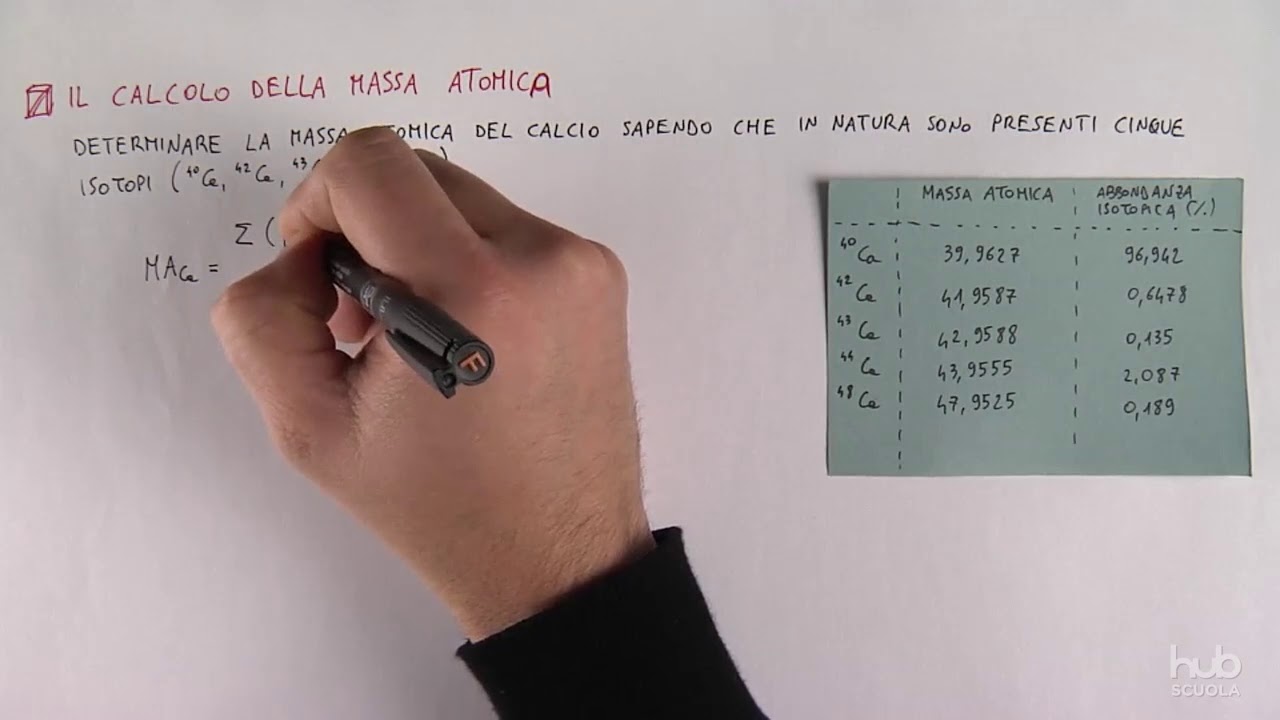 IL CALCOLO DELLA MASSA ATOMICA
DETERMINARE LA MASSA ATOMICA DEL CALCIO SAPENDO CHE IN NATURA SONO PRESENTI CINQUE
ISOTOPI (⁴⁰Ca, ⁴²Ca, ⁴³
Σ (
MA Ca =
MASSA ATOMICA ABBONDANZA
ISOTOPICA (%)
⁴⁰Ca 39,9627 96,942
⁴²Ca 41,9587 0,6478
⁴³Ca 42,9588 0,135
⁴⁴Ca 43,9555 2,087
⁴⁸Ca 47,9525 0,189
F
hub
SCUOLA